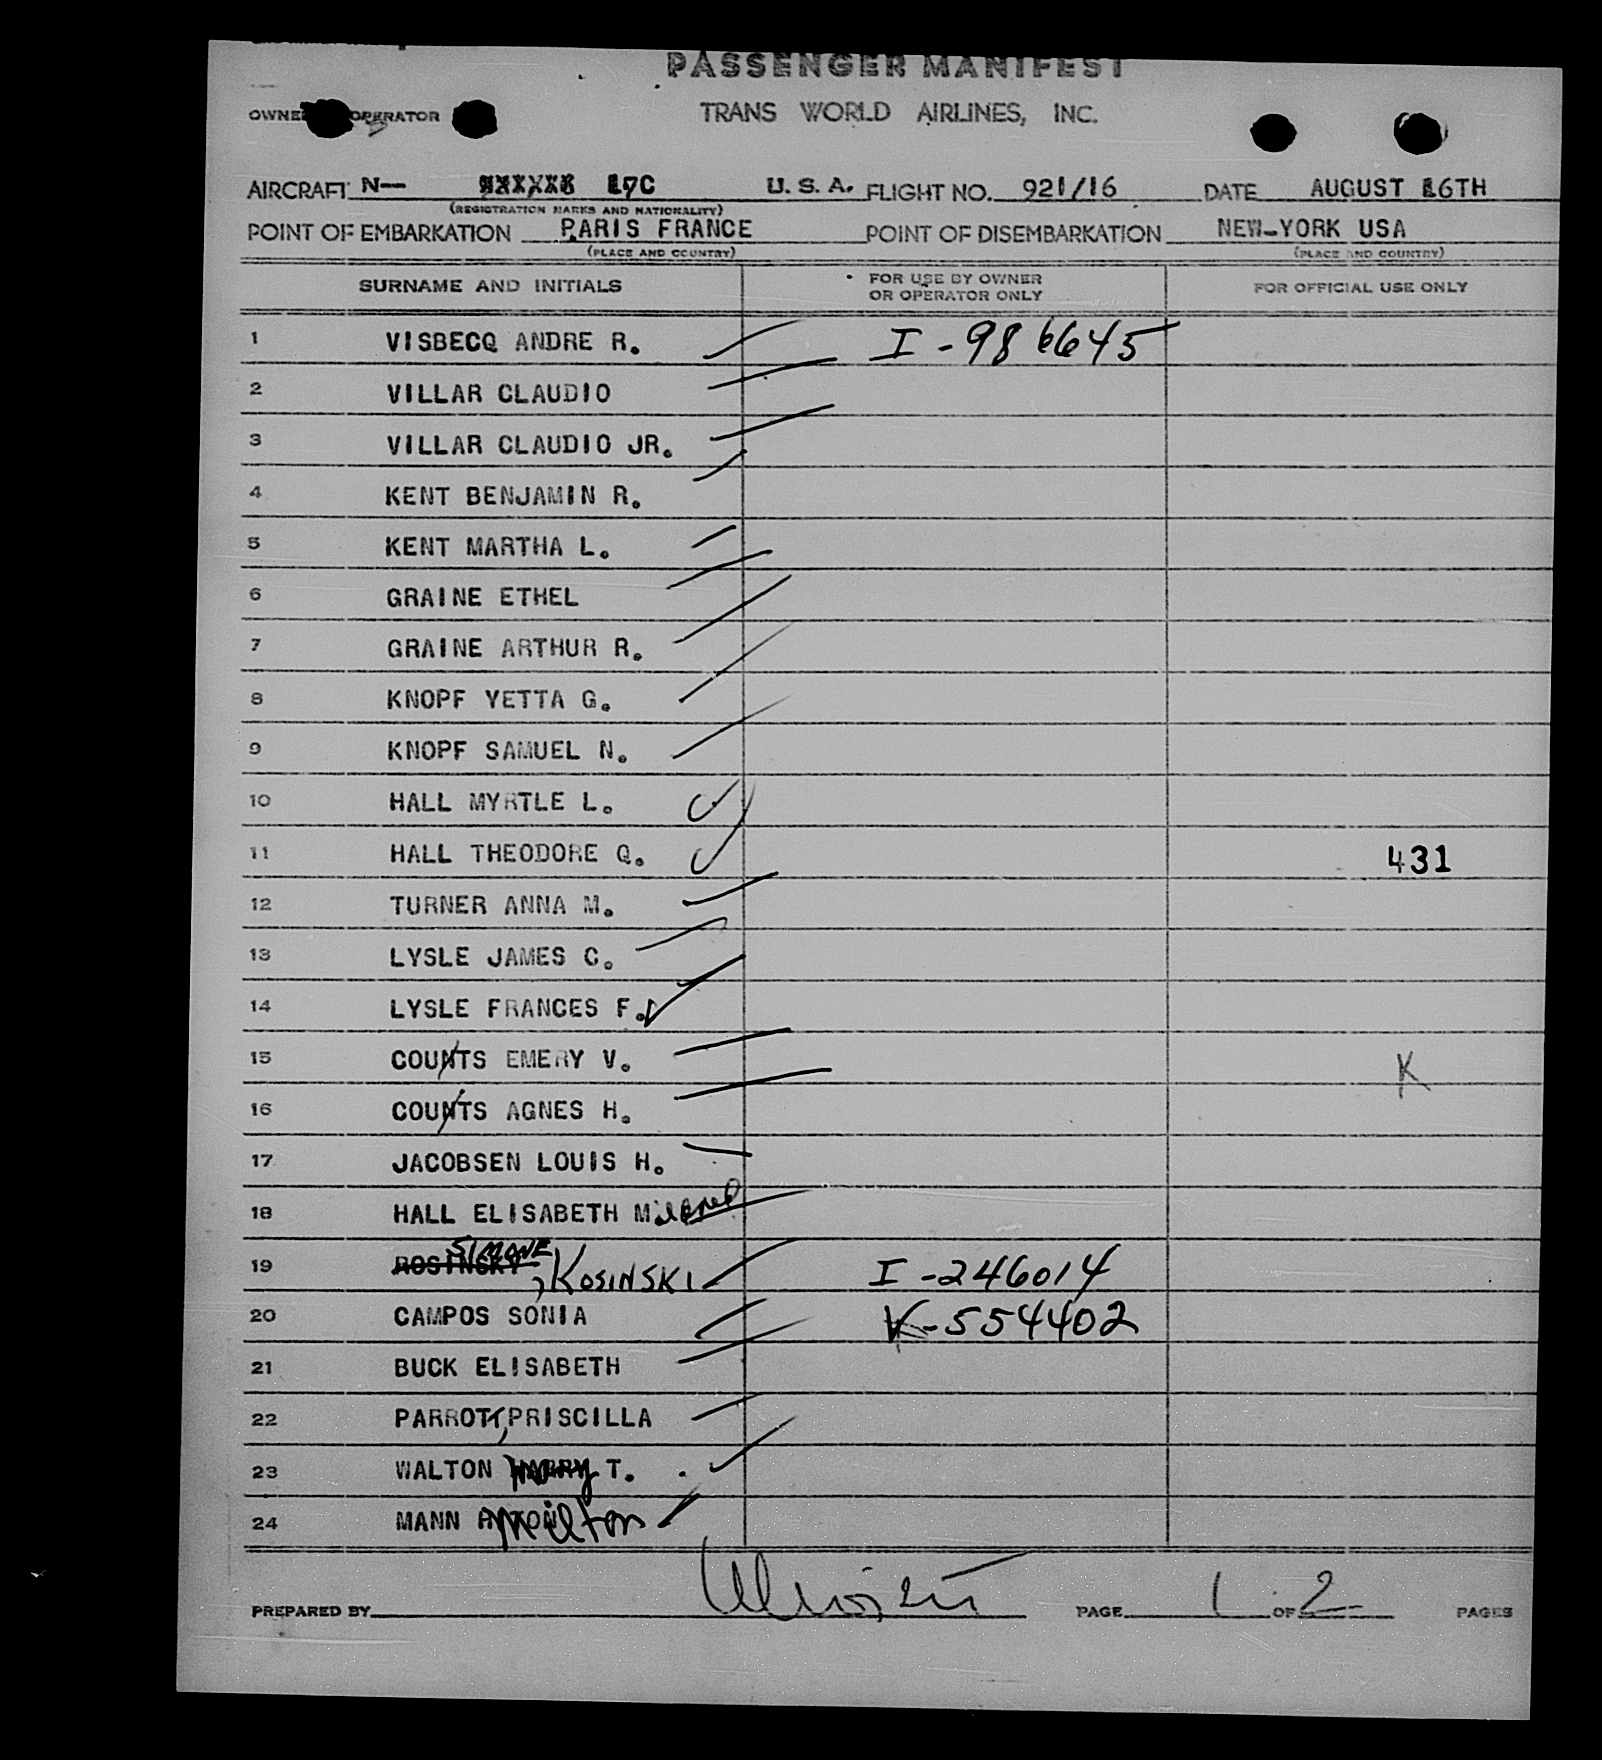 PASSENGER MANIFEST
TRANS WORLD AIRLINES, INC.
OWNER OPERATOR
AIRCRAFT N— 17C U. S. A. FLIGHT NO. 921/16 DATE AUGUST 16TH
(REGISTRATION MARKS AND NATIONALITY)
POINT OF EMBARKATION PARIS FRANCE POINT OF DISEMBARKATION NEW-YORK USA
(PLACE AND COUNTRY) (PLACE AND COUNTRY)
SURNAME AND INITIALS FOR USE BY OWNER OR OPERATOR ONLY FOR OFFICIAL USE ONLY
1 VISBECQ ANDRE R. I-986645
2 VILLAR CLAUDIO
3 VILLAR CLAUDIO JR.
4 KENT BENJAMIN R.
5 KENT MARTHA L.
6 GRAINE ETHEL
7 GRAINE ARTHUR R.
8 KNOPF YETTA G.
9 KNOPF SAMUEL N.
10 HALL MYRTLE L.
11 HALL THEODORE Q. 431
12 TURNER ANNA M.
13 LYSLE JAMES C.
14 LYSLE FRANCES F.
15 COUNTS EMERY V. K
16 COUNTS AGNES H.
17 JACOBSEN LOUIS H.
18 HALL ELISABETH Mildred
19 ROSINSKY SIMONE, KOSINSKI I-246014
20 CAMPOS SONIA V-554402
21 BUCK ELISABETH
22 PARROTT, PRISCILLA
23 WALTON HARRY T.
24 MANN Milton
PREPARED BY PAGE 1 OF 2 PAGES